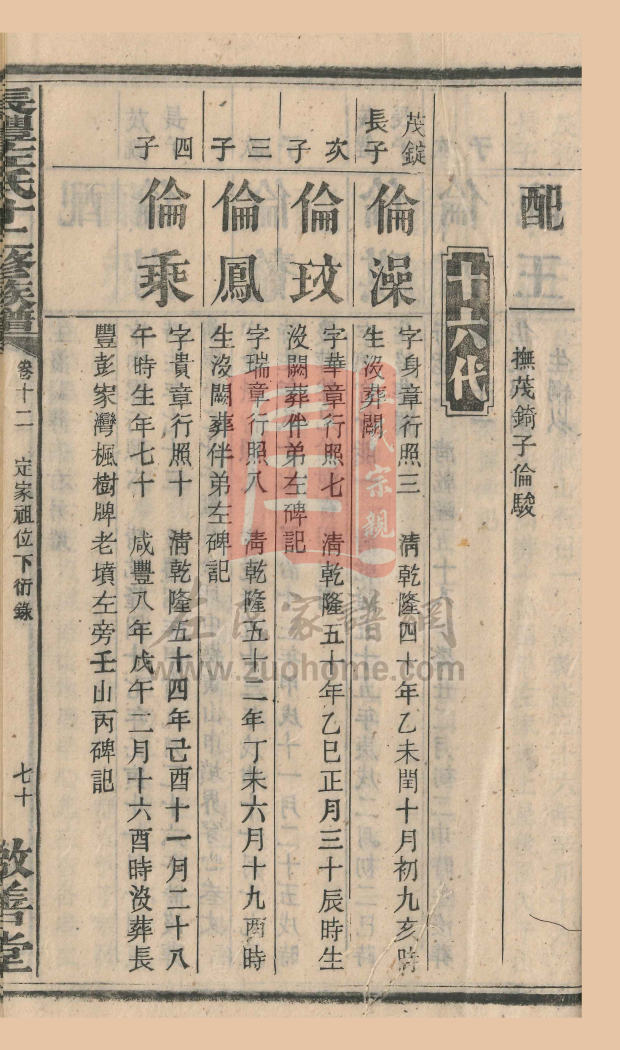 配
撫茂錡子倫駿
十六代
茂錠
長子
倫澡
字身章行照三 清乾隆四十年乙未閏十月初九亥時
生沒葬闕
次子
倫玟
字華章行照七 清乾隆五十年乙巳正月三十辰時生
沒闕葬伴弟左碑記
三子
倫鳳
字瑞章行照八 清乾隆五十二年丁未六月十九酉時
生沒闕葬伴弟左碑記
四子
倫乘
字貴章行照十 清乾隆五十四年己酉十一月二十八
午時生年七十 咸豐八年戊午二月十六酉時沒葬長
豐彭家灣楓樹牌老墳左旁壬山丙碑記
長豐左氏十二修族譜
卷十二
定家祖位下衍錄
七十
敦善堂
左氏宗親
左氏家譜網
www.zuohome.com